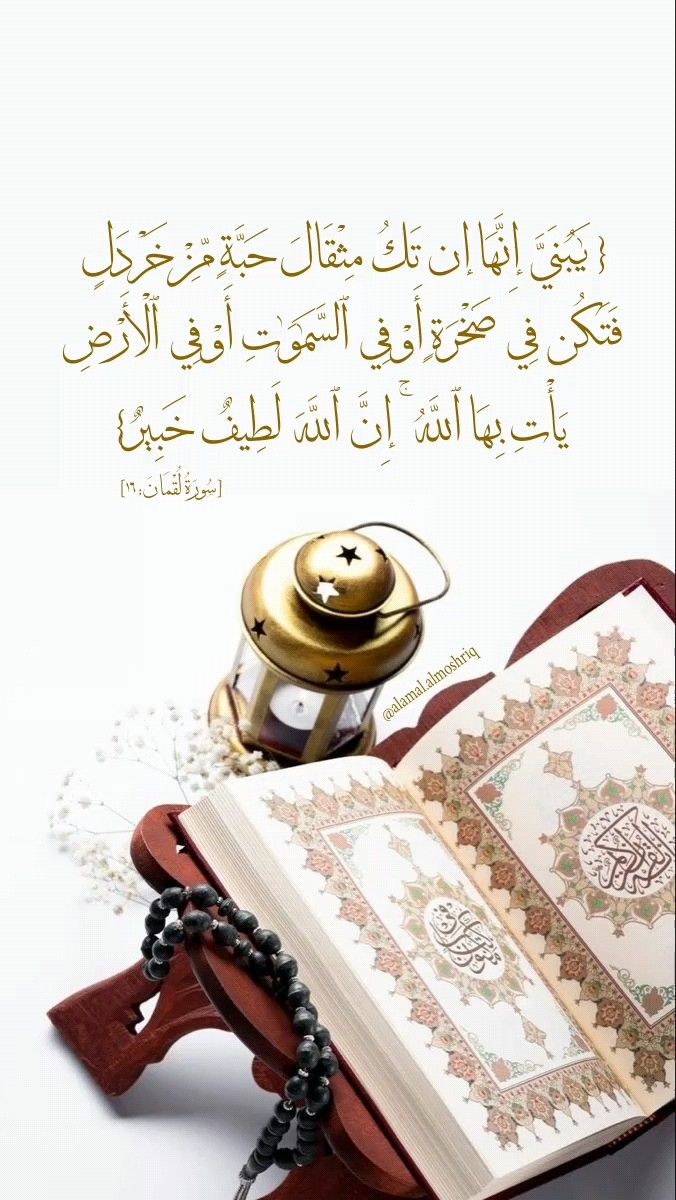 { يَٰبُنَيَّ إِنَّهَا إِن تَكُ مِثْقَالَ حَبَّةٍ مِّنْ خَرْدَلٍ
فَتَكُن فِي صَخْرَةٍ أَوْ فِي ٱلسَّمَٰوَٰتِ أَوْ فِي ٱلْأَرْضِ
يَأْتِ بِهَا ٱللَّهُ ۚ إِنَّ ٱللَّهَ لَطِيفٌ خَبِيرٌ}
[سُورَةُ لُقْمَانَ: ١٦]
@alamal.almoshriq